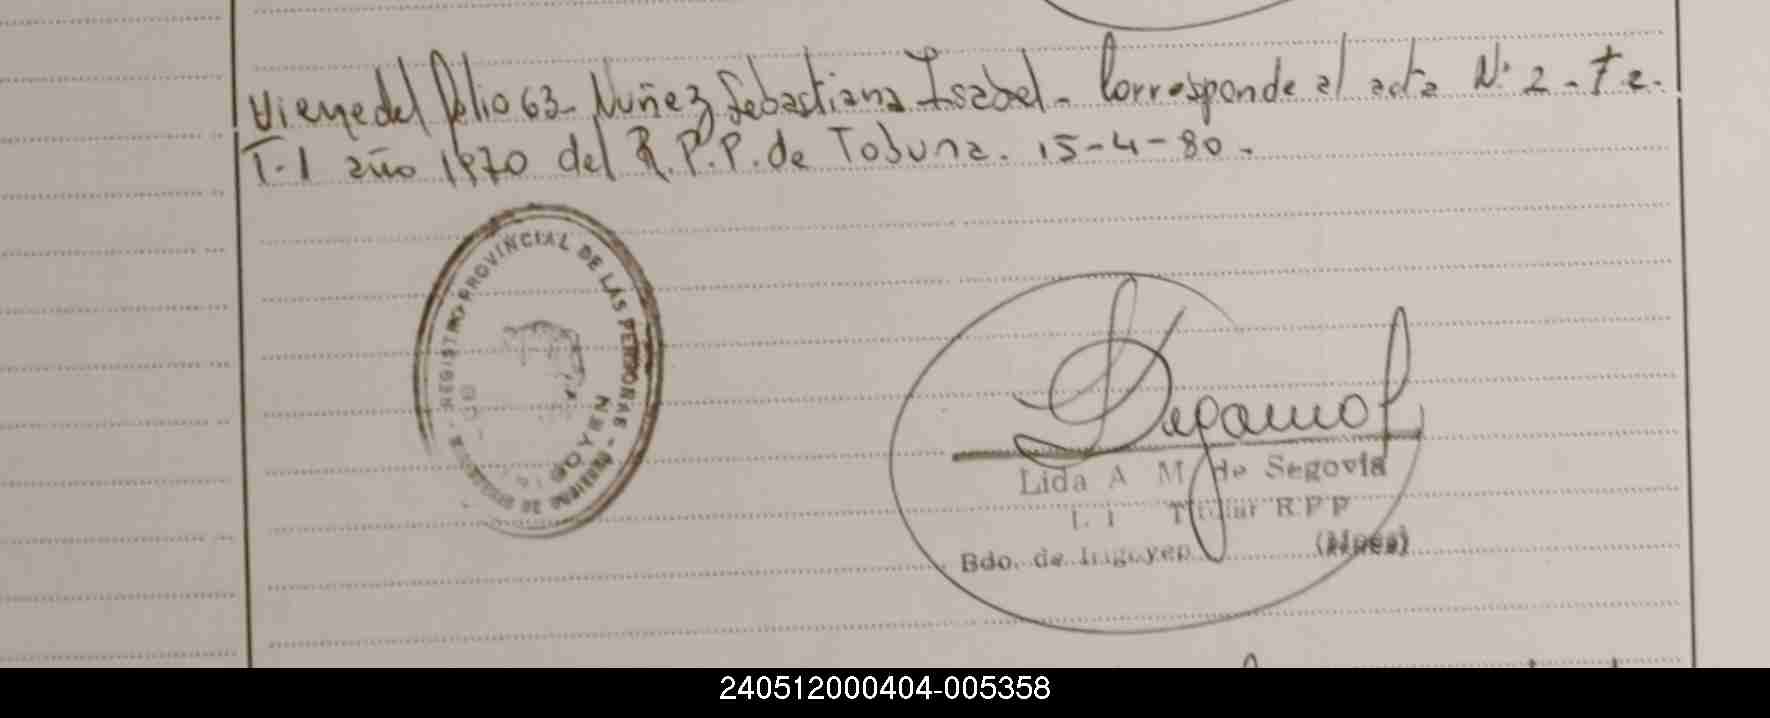 Viene del folio 63- Nuñez Sebastiana Isabel- Corresponde al acta Nº 2- F 2.
T-1 año 1970 del R.P.P. de Tobuna. 15-4-80.
REGISTRO PROVINCIAL DE LAS PERSONAS -
Lida A M de Segovia
Titular R P P
Bdo. de Irigoyen (Mnes)
240512000404-005358